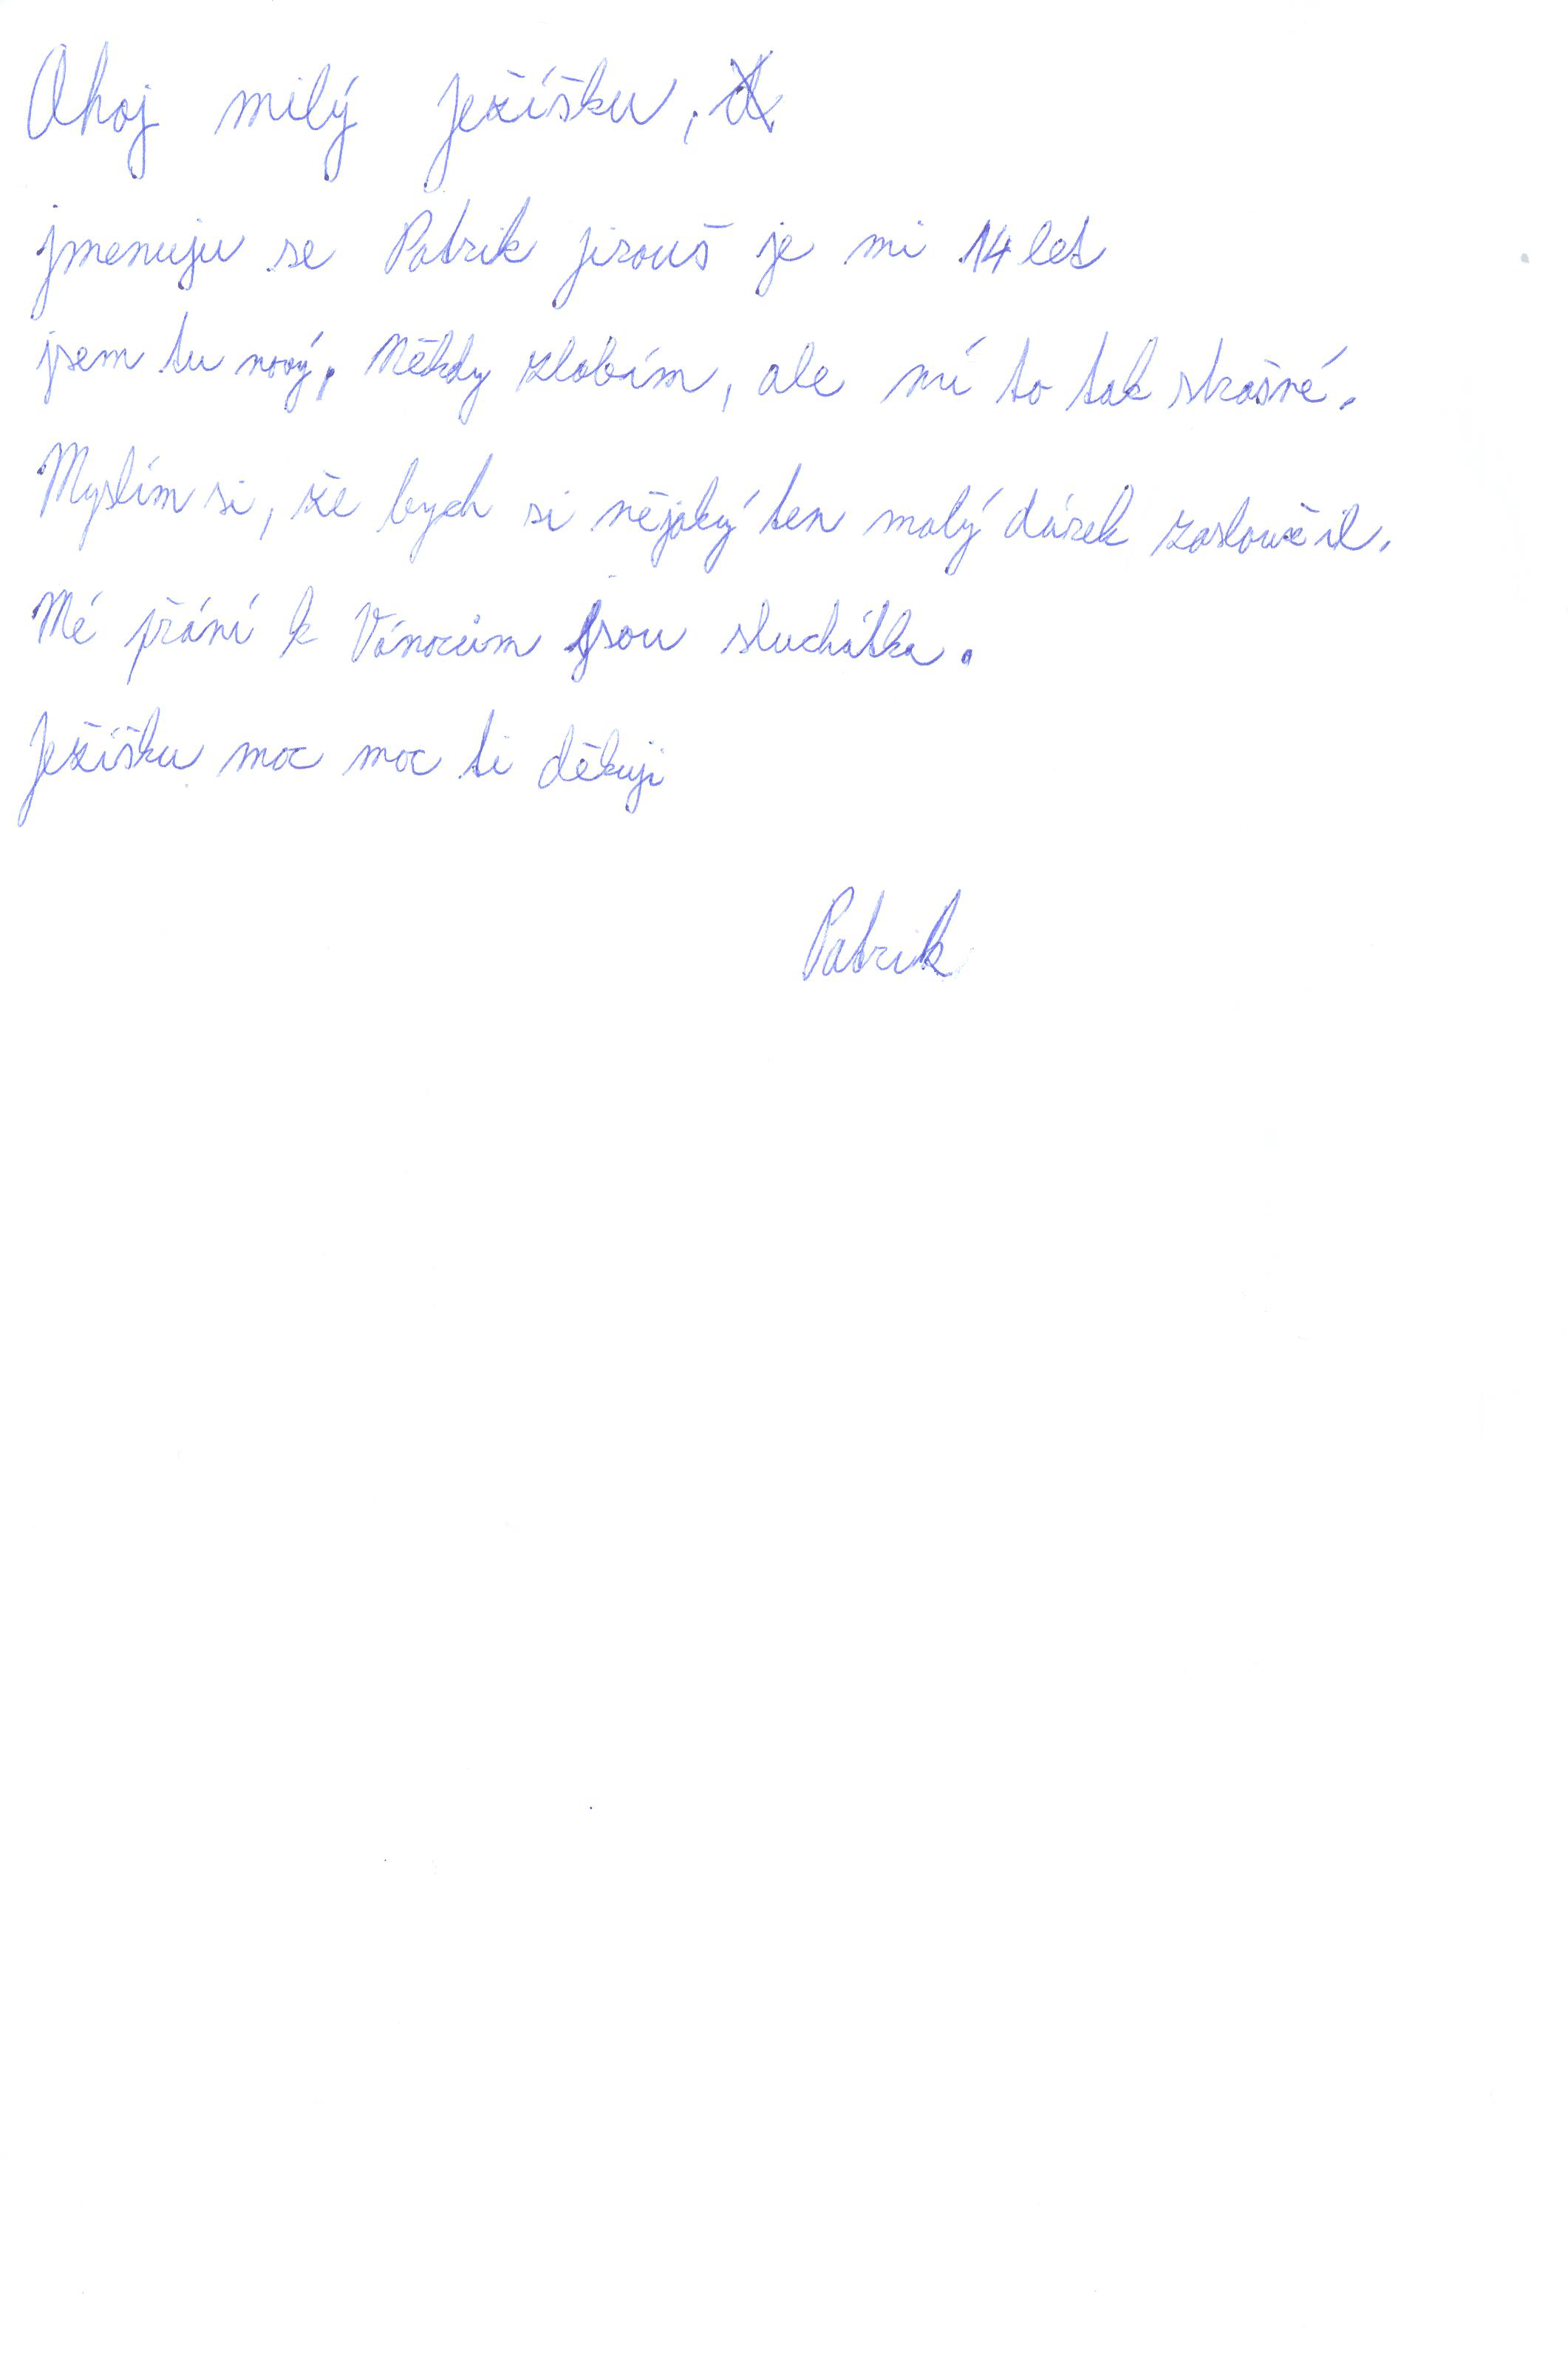 Ahoj milý Ježíšku,
jmenuju se Patrik Jirouš je mi 14 let
jsem tu nový. Někdy zlobím, ale ní to tak strašné.
Myslím si, že bych si nějaký ten malý dárek zasloužil.
Mé přání k Vánocům jsou sluchátka.
Ježíšku moc moc ti děkuji
Patrik